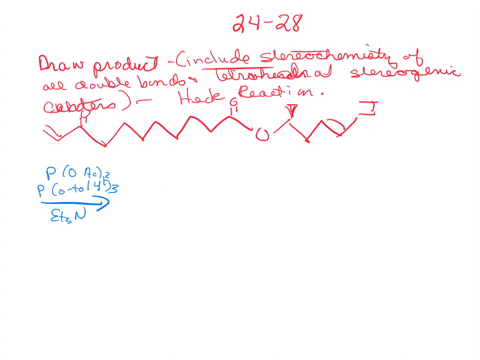 24-28
Draw product - (include stereochemistry of
all double bonds + tetrahedral stereogenic
centers) - Heck Reaction.
O O I
O
P(OAc)2
P(o-tolyl)3
Et3N